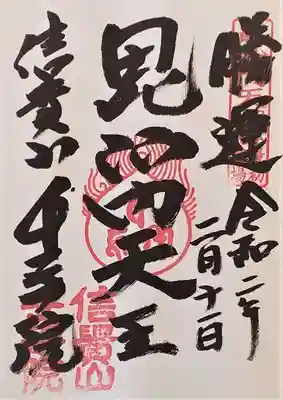 勝運
令和二年
二月十一日
毘沙門天王
信貴山千手院
信貴山